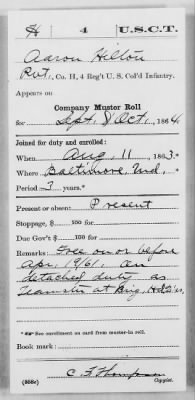 H | 4 | U.S.C.T.
Aaron Hilton
Pvt., Co. H, 4 Reg't U. S. Col'd Infantry.
Appears on
Company Muster Roll
for Sept. & Oct., 1864.
Joined for duty and enrolled:
When Aug. 11, 1863.*
Where Baltimore, Md.
Period 3 years.*
Present or absent: Present
Stoppage, $ 100 for
Due Gov't $ 100 for
Remarks: Free on or before
Apr. 19/61. On
detached duty as
Teamster at Brig. Hdqrs.
*See enrollment on card from muster-in roll.
Book mark:
(358c) Copyist.